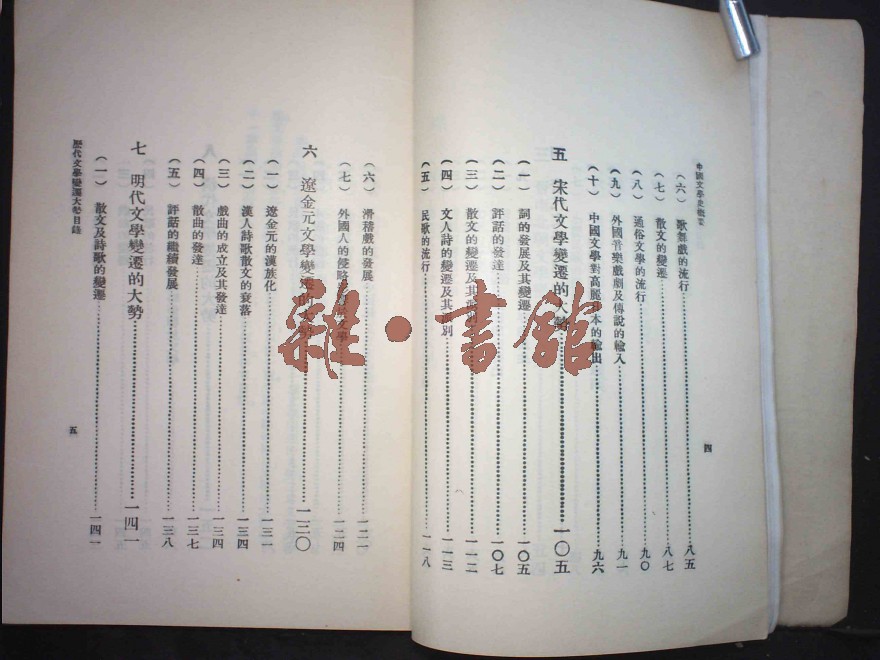 中國文學史概要
（六） 歌舞戲的流行 八五
（七） 散文的變遷 八七
（八） 通俗文學的流行 九〇
（九） 外國音樂戲劇及傳說的輸入 九一
（十） 中國文學對高麗日本的輸出 九六
五 宋代文學變遷的大勢 一〇五
（一） 詞的發展及其變遷 一〇五
（二） 評話的發達 一〇七
（三） 散文的變遷及其 一一二
（四） 文人詩的變遷及其 別 一一三
（五） 民歌的流行 一一八
四
（六） 滑稽戲的發展 一二一
（七） 外國人的侵略 文學 一二四
六 遼金元文學變遷的大勢 一三〇
（一） 遼金元的漢族化 一三一
（二） 漢人詩歌散文的衰落 一三四
（三） 戲曲的成立及其發達 一三四
（四） 散曲的發達 一三七
（五） 評話的繼續發展 一三八
七 明代文學變遷的大勢 一四一
（一） 散文及詩歌的變遷 一四一
歷代文學變遷大勢目錄
五
雜·書館